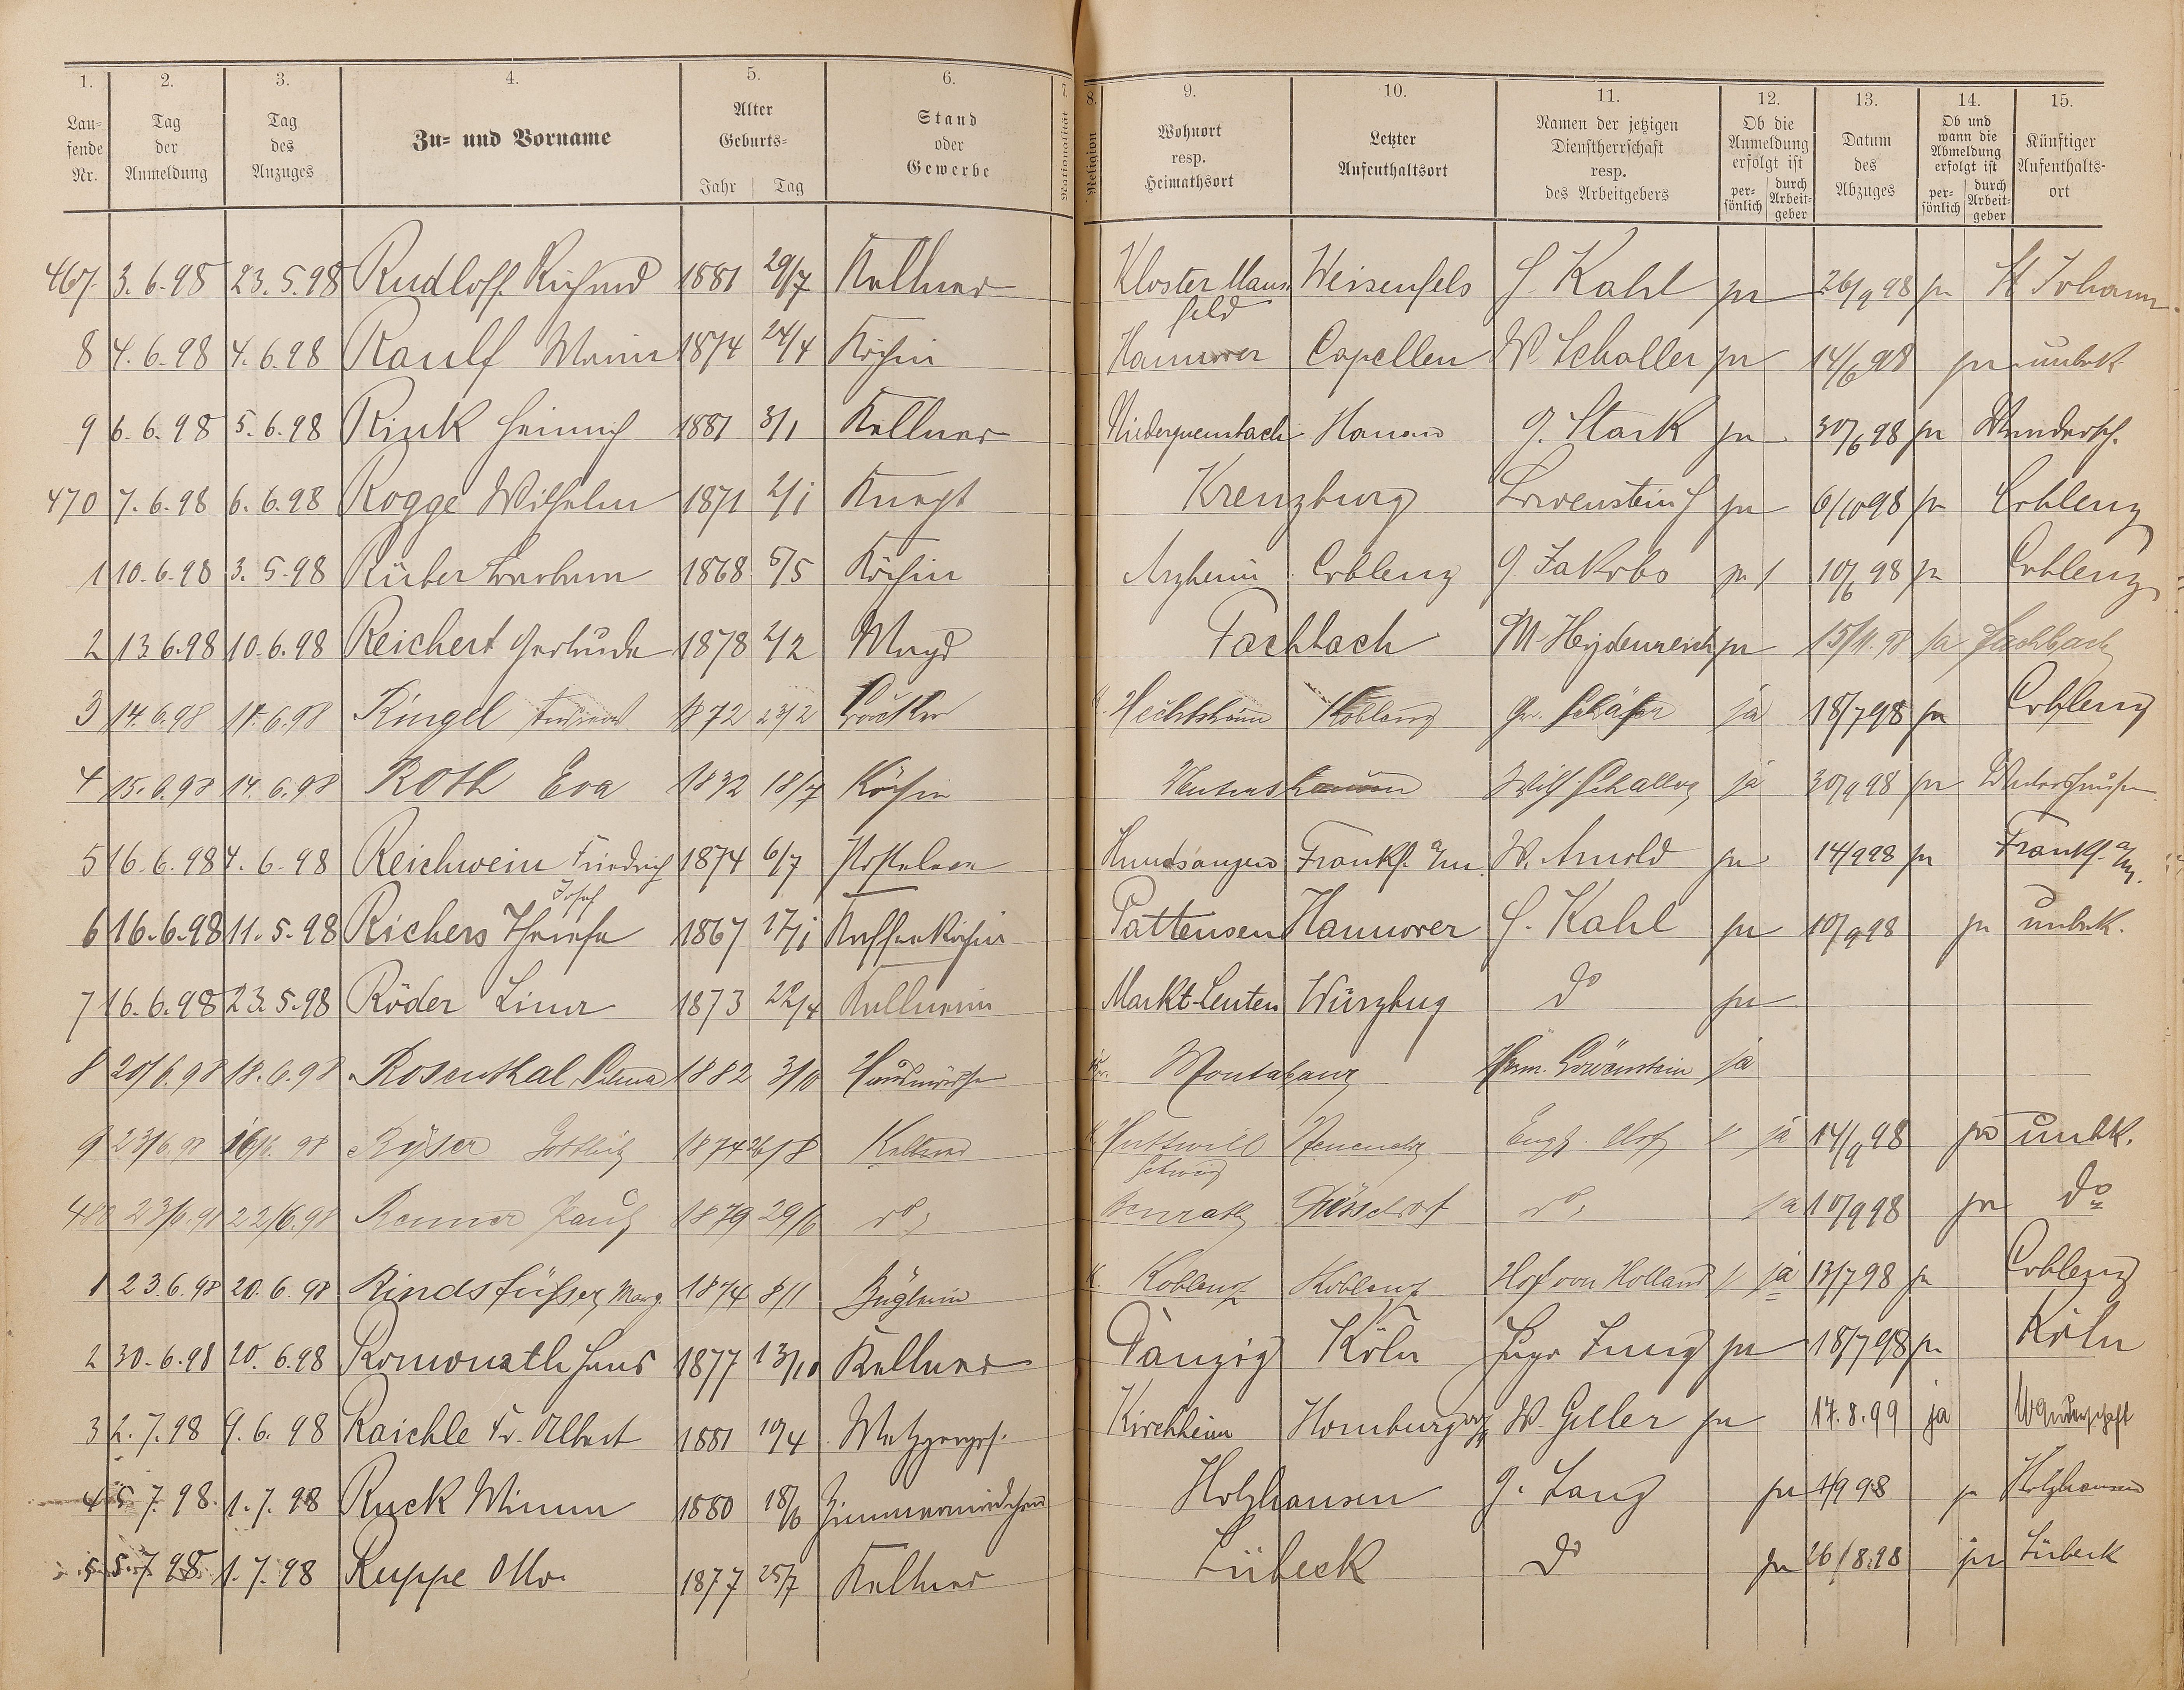 1. 2. 3. 4. 5. 6. 7. 8. 9. 10. 11. 12. 13. 14. 15.
Lau-
fende
Nr.
Tag
der
Anmeldung
Tag
des
Anzuges
Zu- und Vorname
Alter
Geburts-
Jahr Tag
Stand
oder
Gewerbe
Nationalität
Religion
Wohnort
resp.
Heimathsort
Letzter
Aufenthaltsort
Namen der jetzigen
Dienstherrschaft
resp.
des Arbeitgebers
Ob die
Anmeldung
erfolgt ist
per-
sönlich
durch
Arbeit-
geber
Datum
des
Abzuges
Ob und
wann die
Abmeldung
erfolgt ist
per-
sönlich
durch
Arbeit-
geber
Künftiger
Aufenthalts-
ort
467. 3.6.98 23.5.98 Rudloff Richard 1881 29/7 Kellner Kloster Mans Weisenfels H. Kahl ja 26/9 98 ja St Johann
feld
8 4.6.98 4.6.98 Raulf Maria 1874 24/4 Köchin Hannover Capellen W Schaller ja 14/6 98 ja unbek
9 6.6.98 5.6.98 Rink Heinrich 1881 3/1 Kellner Hanau G. Stark ja 30/6 98 ja Wandersch.
470 7.6.98 6.6.98 Rogge Wilhelm 1871 2/1 Knecht Kreuzburg Löwenstein H ja 6/10 98 ja Coblenz
1 10.6.98 3.5.98 Rüber Barbara 1868 5/5 Köchin Arzheim Coblenz G. Jakobs ja 1 10/6 98 ja Coblenz
2 13.6.98 10.6.98 Reichert Gertrude 1878 2/2 Magd Fachbach M. Heydenreich ja 15/11.98 ja Fachbach
3 14.6.98 14.6.98 Ringel Andreas 1872 23/2 Hechtsheim Koblenz Gr. Schäfer ja 18/7 98 ja Coblenz
4 15.6.98 14.6.98 Roth Eva 1832 18/7 Köchin Wilh. Schaller ja 30/9 98 ja
5 16.6.98 4.6.98 Reichwein Friedrich 1874 6/7 Hundsangen Frankf. a/m. W. Arnold ja 14/9 98 ja Frankf. a/m.
Josef
6 16.6.98 11.5.98 Richers Theresa 1867 17/1 Kaffeeköchin Pattensen Hannover H. Kahl ja 10/9 98 ja unbek.
7 16.6.98 23.5.98 Röder Lina 1873 22/4 Kellnerin Markt-Leuten Würzbug do ja
8 20/6.98 18.6.98 Rosenthal Selma 1882 3/10 Montabaur Herm. Löwenstein ja
9 23/6.98 16/6.98 Ryser Gottlieb 1874 26/8 Kellner Huttwill Engl. Hof ja 14/9 98 ja unbk.
Schweiz
480 23/6.98 22/6.98 Renner Paul 1879 29/6 do Benrath Düsseldorf do ja 10/9 98 ja do
1 23.6.98 20.6.98 Rindsfüßer Marg. 1874 8/11 Büglerin K. Koblenz Koblenz Hof von Holland ja 13/7 98 ja Coblenz
2 30.6.98 20.6.98 Romonath Hans 1877 13/10 Kellner Danzig Köln Hugo Jung ja 18/7 98 ja Köln
3 2.7.98 9.6.98 Raichle Fr. Albert 1881 10/4 Metzgerges. Kirchheim Homburg W. Geller ja 17.8.99 ja Wanderschaft
4 5.7.98. 1.7.98 Ruck Minna 1880 18/6 Zimmermädchen Holzhausen G. Lang ja 1/9 98 ja Holzhausen
5 5.7.98 1.7.98 Ruppe Otto 1877 25/7 Kellner Lübeck do ja 26/8.98 ja Lübeck